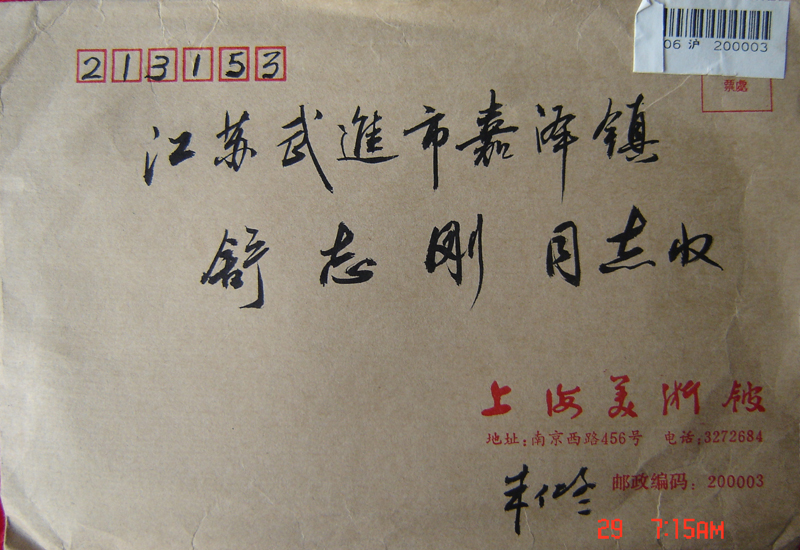 06 沪 200003
213153
票處
江苏武進市嘉泽镇
舒志刚同志收
上海美术馆
地址:南京西路456号 电话:3272684
邮政编码:200003
29 7:15AM